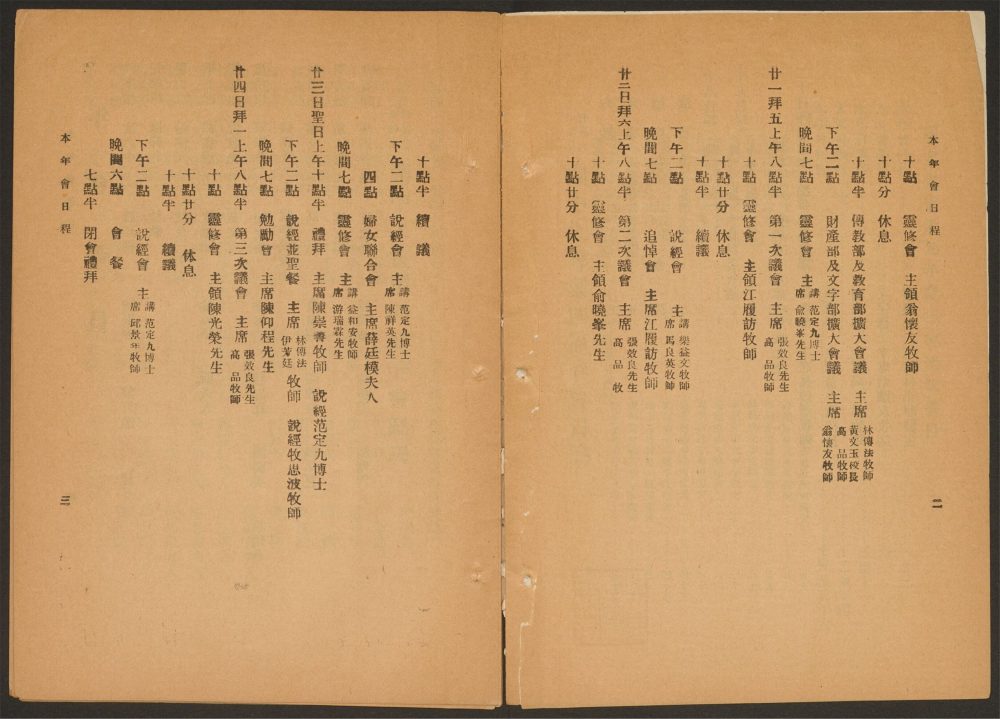 本年會日程
十點 靈修會 主領翁懷友牧師
十點分 休息
十點半 傳教部及教育部擴大會議 主席 林傳法牧師 黃文玉校長
下午二點 財產部及文字部擴大會議 主席 高品牧師 翁懷友牧師
晚間七點 靈修會 主講 范定九博士 席 俞曉峯先生
廿一拜五上午八點半 第一次議會 主席 張效良先生 高品牧師
十點 靈修會 主領江履訪牧師
十點廿分 休息
十點半 續議
下午二點 說經會 主講 樂益文牧師 席 馬良英牧師
晚間七點 追悼會 主席江履訪牧師
廿二日拜六上午八點半 第二次議會 主席 張效良先生 高品牧
十點 靈修會 主領俞曉峯先生
十點廿分 休息
二
十點半 續議
下午二點 說經會 主講 范定九博士 席 陳祥英先生
四點 婦女聯合會 主席薛廷模夫人
晚間七點 靈修會 主講 益和安牧師 席 游瑞霖先生
廿三日聖日上午十點半 禮拜 主席陳崇善牧師 說經范定九博士
下午二點 說經並聖餐 主席 林傳法 伊芳廷 牧師 說經牧恩波牧師
晚間七點 勉勵會 主席陳仰程先生
廿四日拜一上午八點半 第三次議會 主席 張效良先生 高品牧師
十點 靈修會 主領陳光榮先生
十點廿分 休息
十點半 續議
下午二點 說經會 主講 范定九博士 席 邱景年牧師
晚間六點 會餐
七點半 閉會禮拜
本年會日程
三